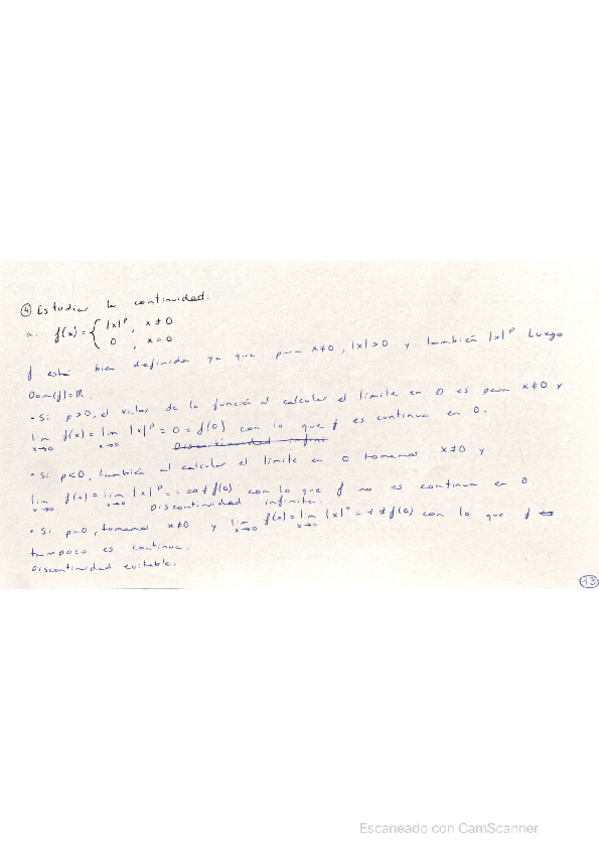 ④ Estudiar la continuidad:
a. f(x) = { |x|^p, x ≠ 0
0, x = 0
f está bien definida ya que para x≠0, |x|>0 y también |x|^p luego
Dom(f)=ℝ.
• Si p>0, el valor de la función al calcular el límite en 0 es para x≠0 y
lim x→0 f(x) = lim x→0 |x|^p = 0 = f(0) con lo que f es continua en 0.
Discontinuidad infini
• Si p<0, también al calcular el límite en 0 tomamos x≠0 y
lim x→0 f(x) = lim x→0 |x|^p = ∞ ≠ f(0) con lo que f no es continua en 0
Discontinuidad infinita.
• Si p=0, tomamos x≠0 y lim x→0 f(x) = lim x→0 |x|^0 = 1 ≠ f(0) con lo que f
tampoco es continua.
Discontinuidad evitable.
13
Escaneado con CamScanner